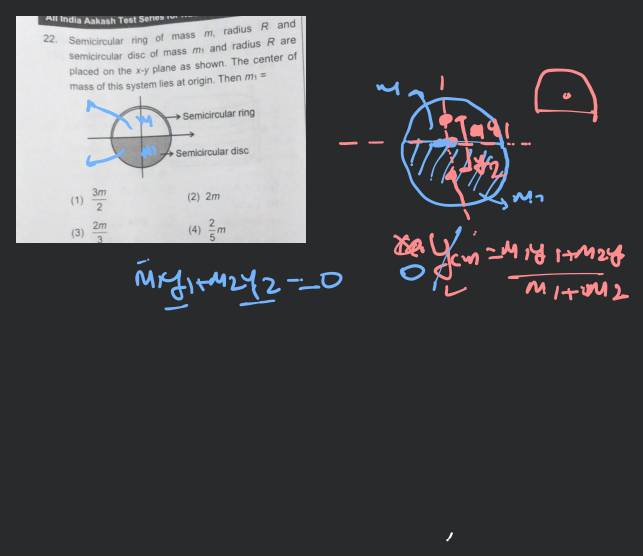 All India Aakash Test Series for
22. Semicircular ring of mass m, radius R and
semicircular disc of mass m₁ and radius R are
placed on the x-y plane as shown. The center of
mass of this system lies at origin. Then m₁ =
Semicircular ring
M
M1
Semicircular disc
(1) 3m/2
(2) 2m
(3) 2m/3
(4) 2/5 m
M
y1
y2
M2
ycm = M1y1+M2y
M1+M2
0
M1y1+M2y2=0